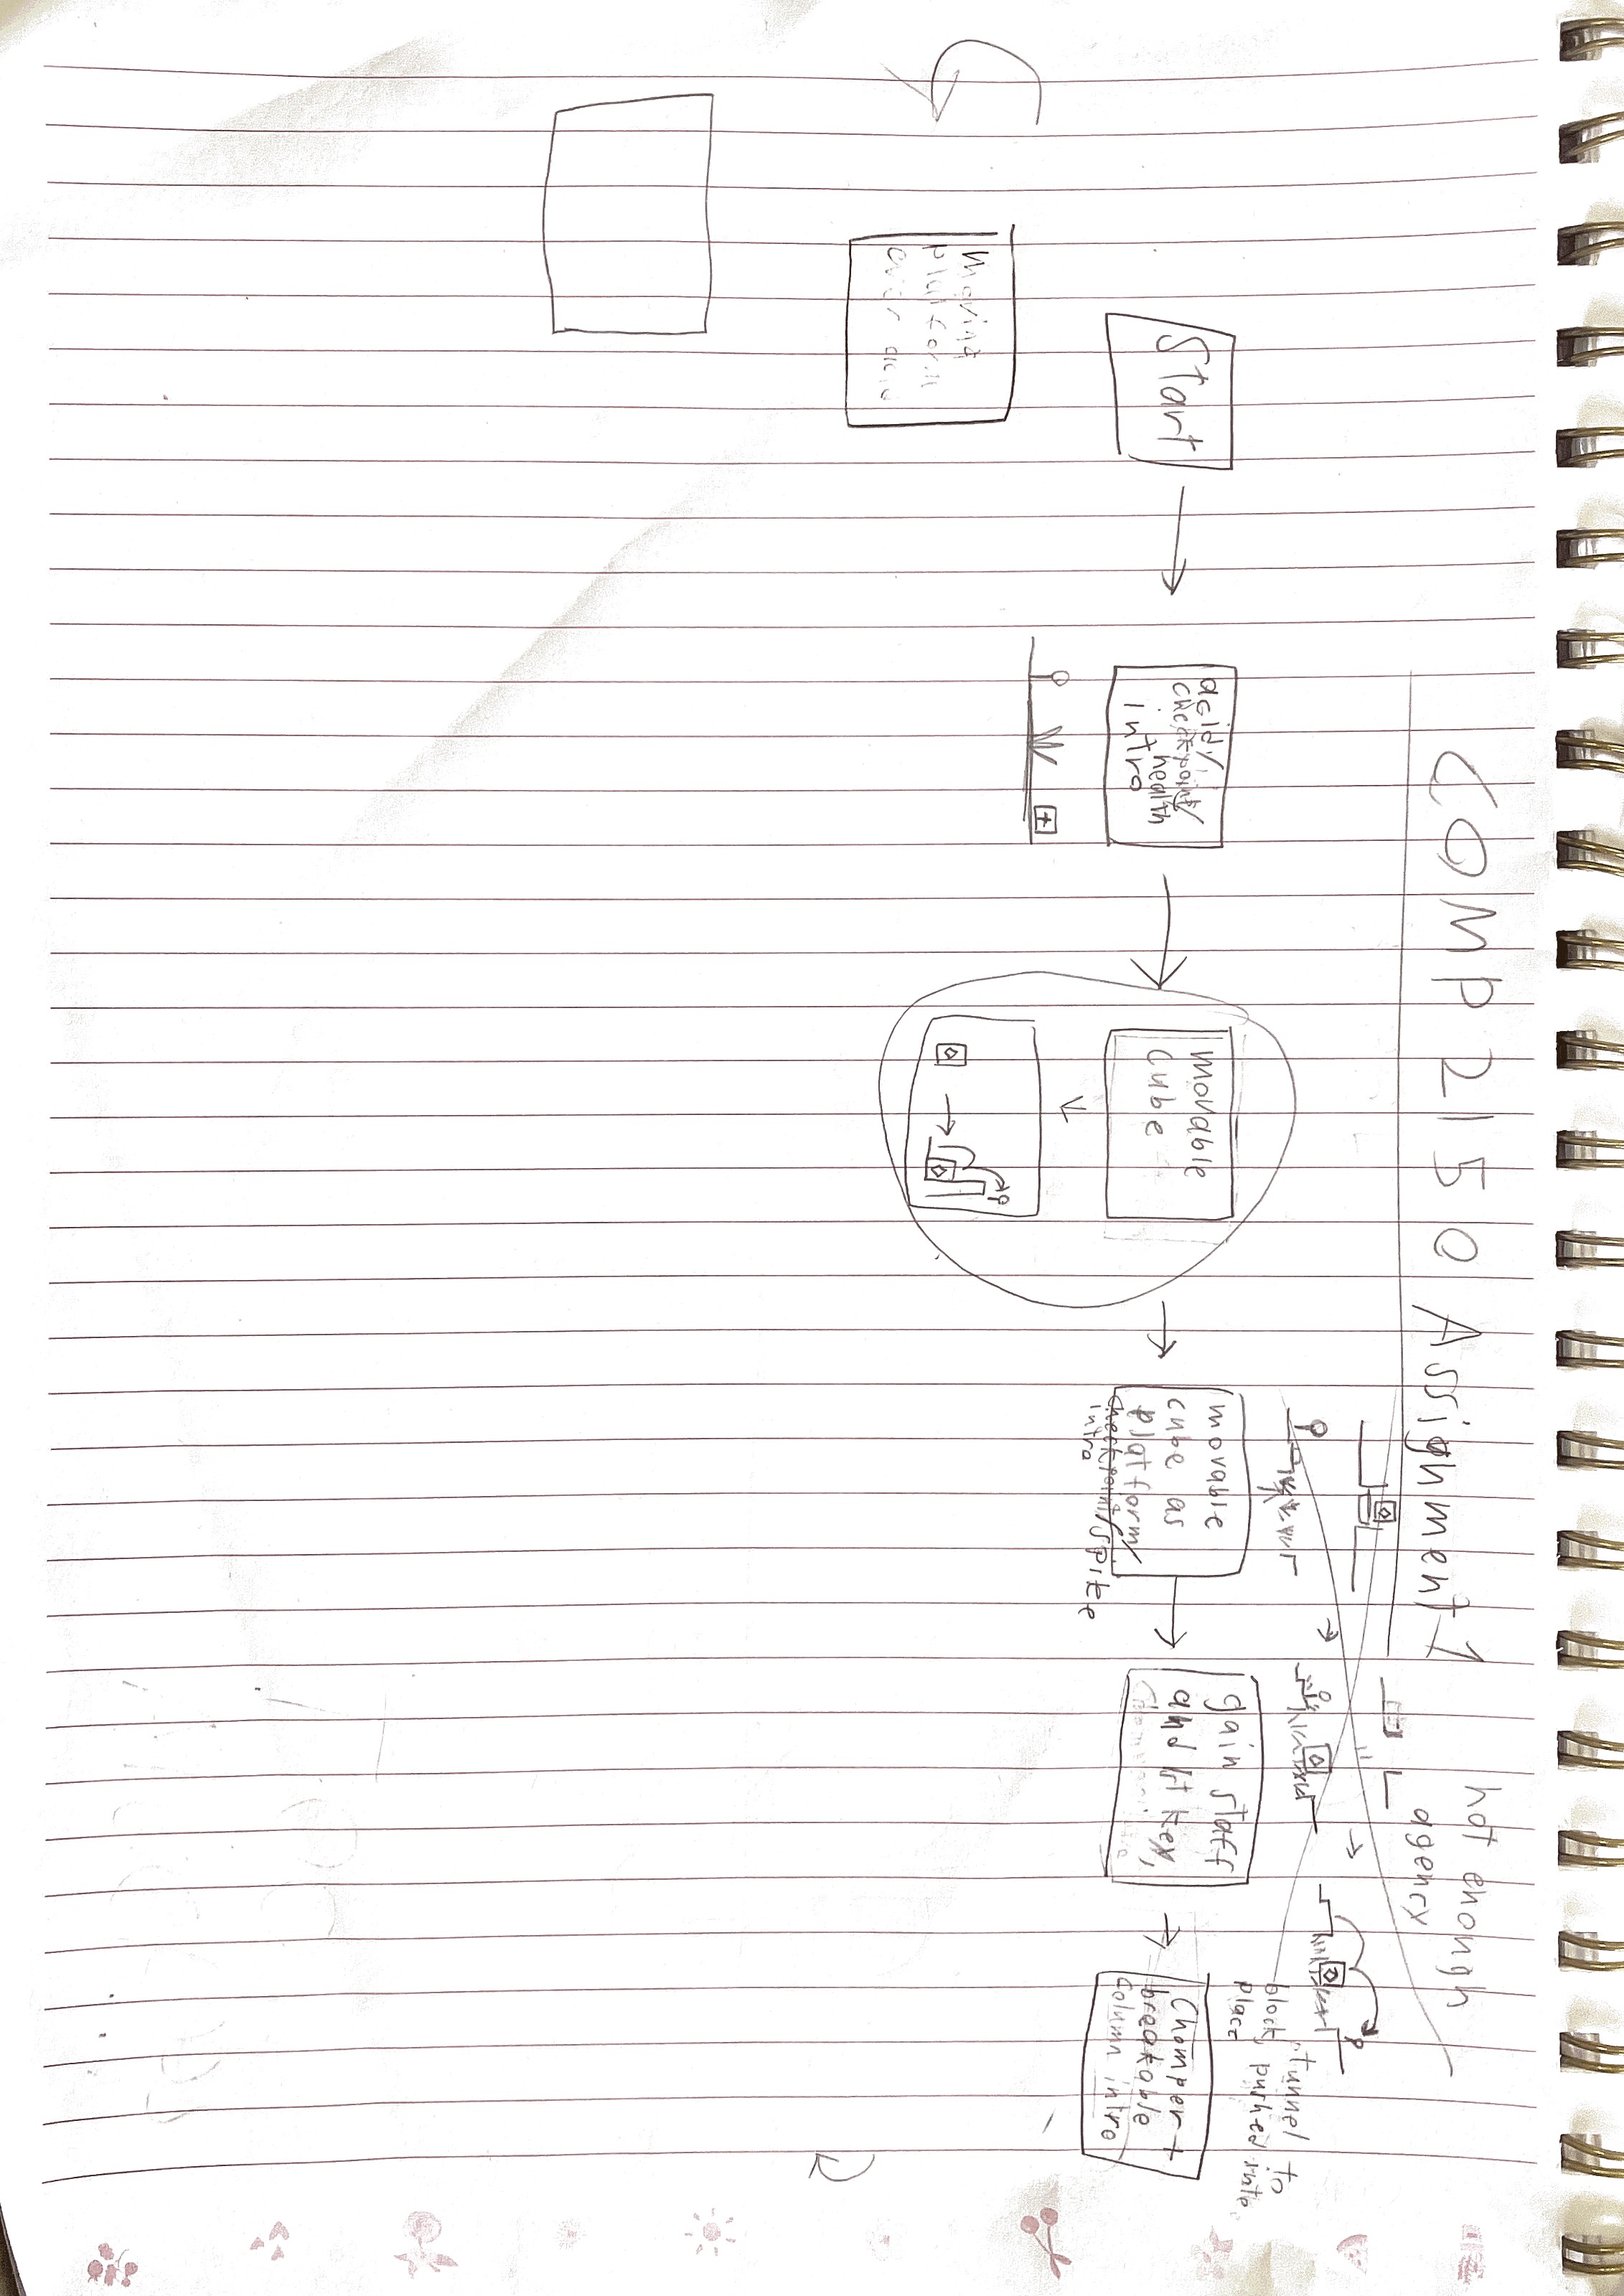 COMP 2150 Assignment 1
not enough
agency
tunnel to
block, pushed into
place
Start
acid/
checkpoint/
health
intro
movable
cube
movable
cube as
platform/
checkpoint/spike
intro
gain staff
and 1st key,
Chomper +
breakable
column intro
Moving
platform
over acid